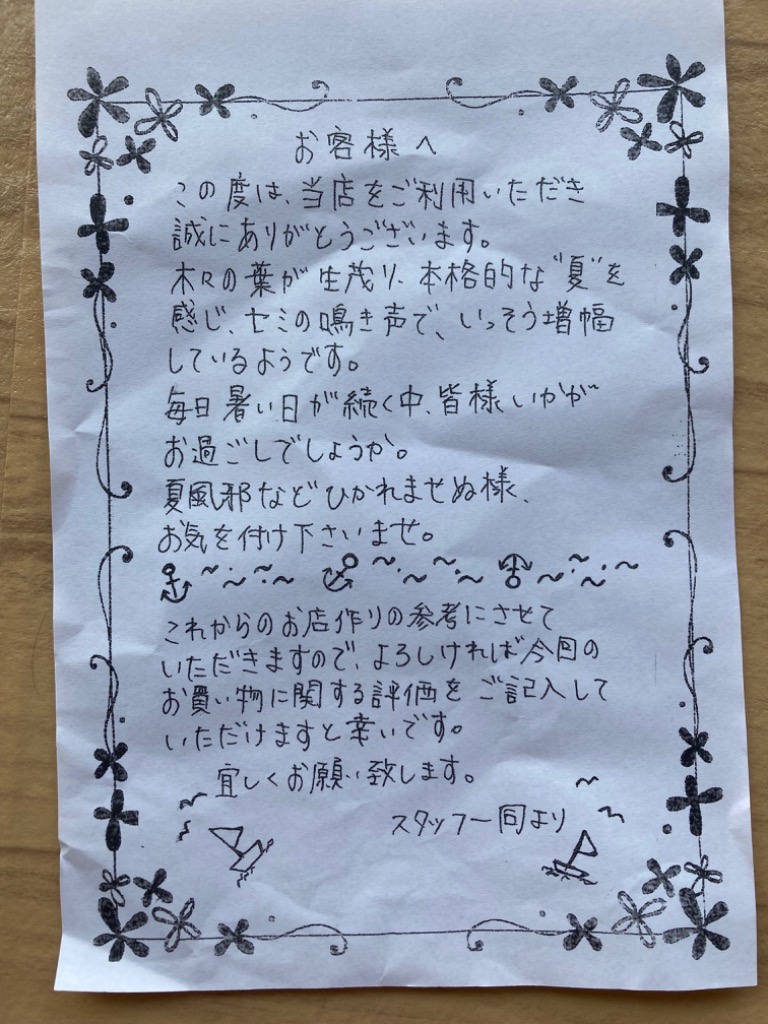 お客様へ
この度は、当店をご利用いただき
誠にありがとうございます。
木々の葉が生茂り、本格的な"夏"を
感じ、セミの鳴き声で、いっそう増幅
しているようです。
毎日暑い日が続く中、皆様いかが
お過ごしでしょうか。
夏風邪などひかれませぬ様、
お気を付け下さいませ。
これからのお店作りの参考にさせて
いただきますので、よろしければ今回の
お買い物に関する評価をご記入して
いただけますと幸いです。
宜しくお願い致します。
スタッフ一同より